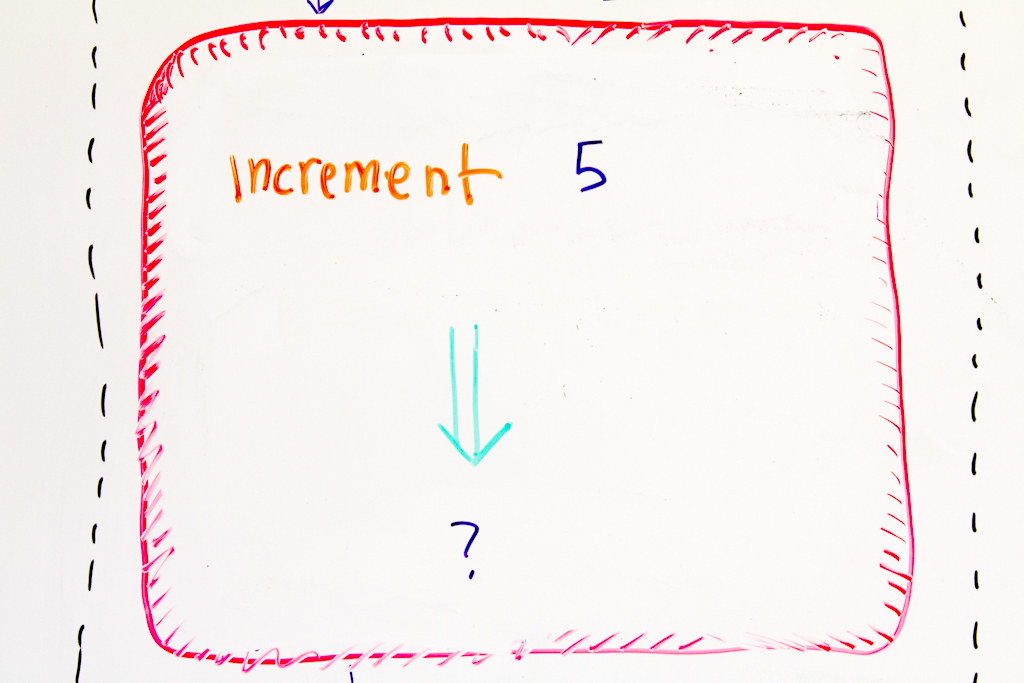 Increment 5
?